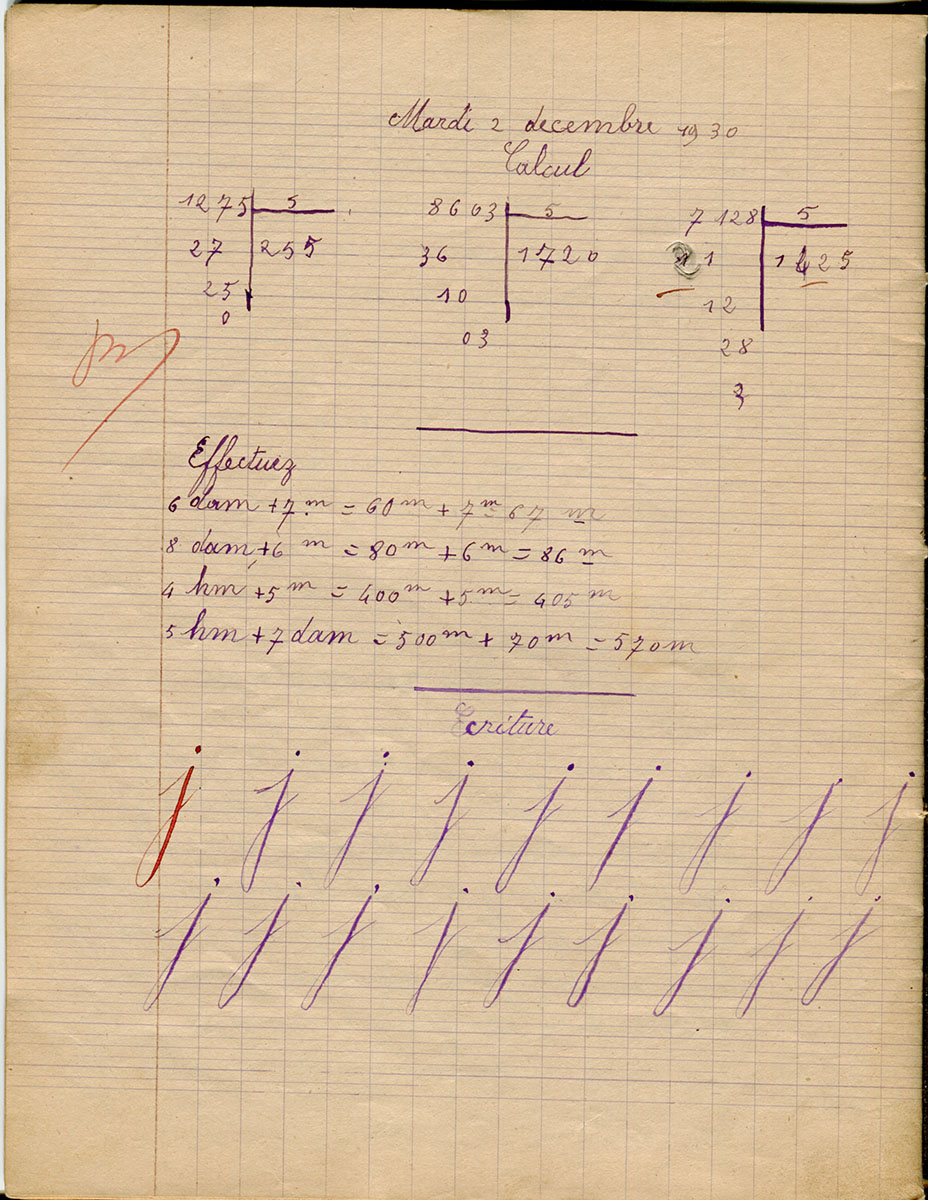 Mardi 2 decembre 1930
Calcul
1275 5
27 255
25
0
8603 5
36 1720
10
03
7128 5
21 1425
12
28
3
Effectuez
6 dam + 7 m = 60 m + 7 m = 67 m
8 dam + 6 m = 80 m + 6 m = 86 m
4 hm + 5 m = 400 m + 5 m = 405 m
5 hm + 7 dam = 500 m + 70 m = 570 m
Ecriture
j j j j j j j j j
j j j j j j j j j